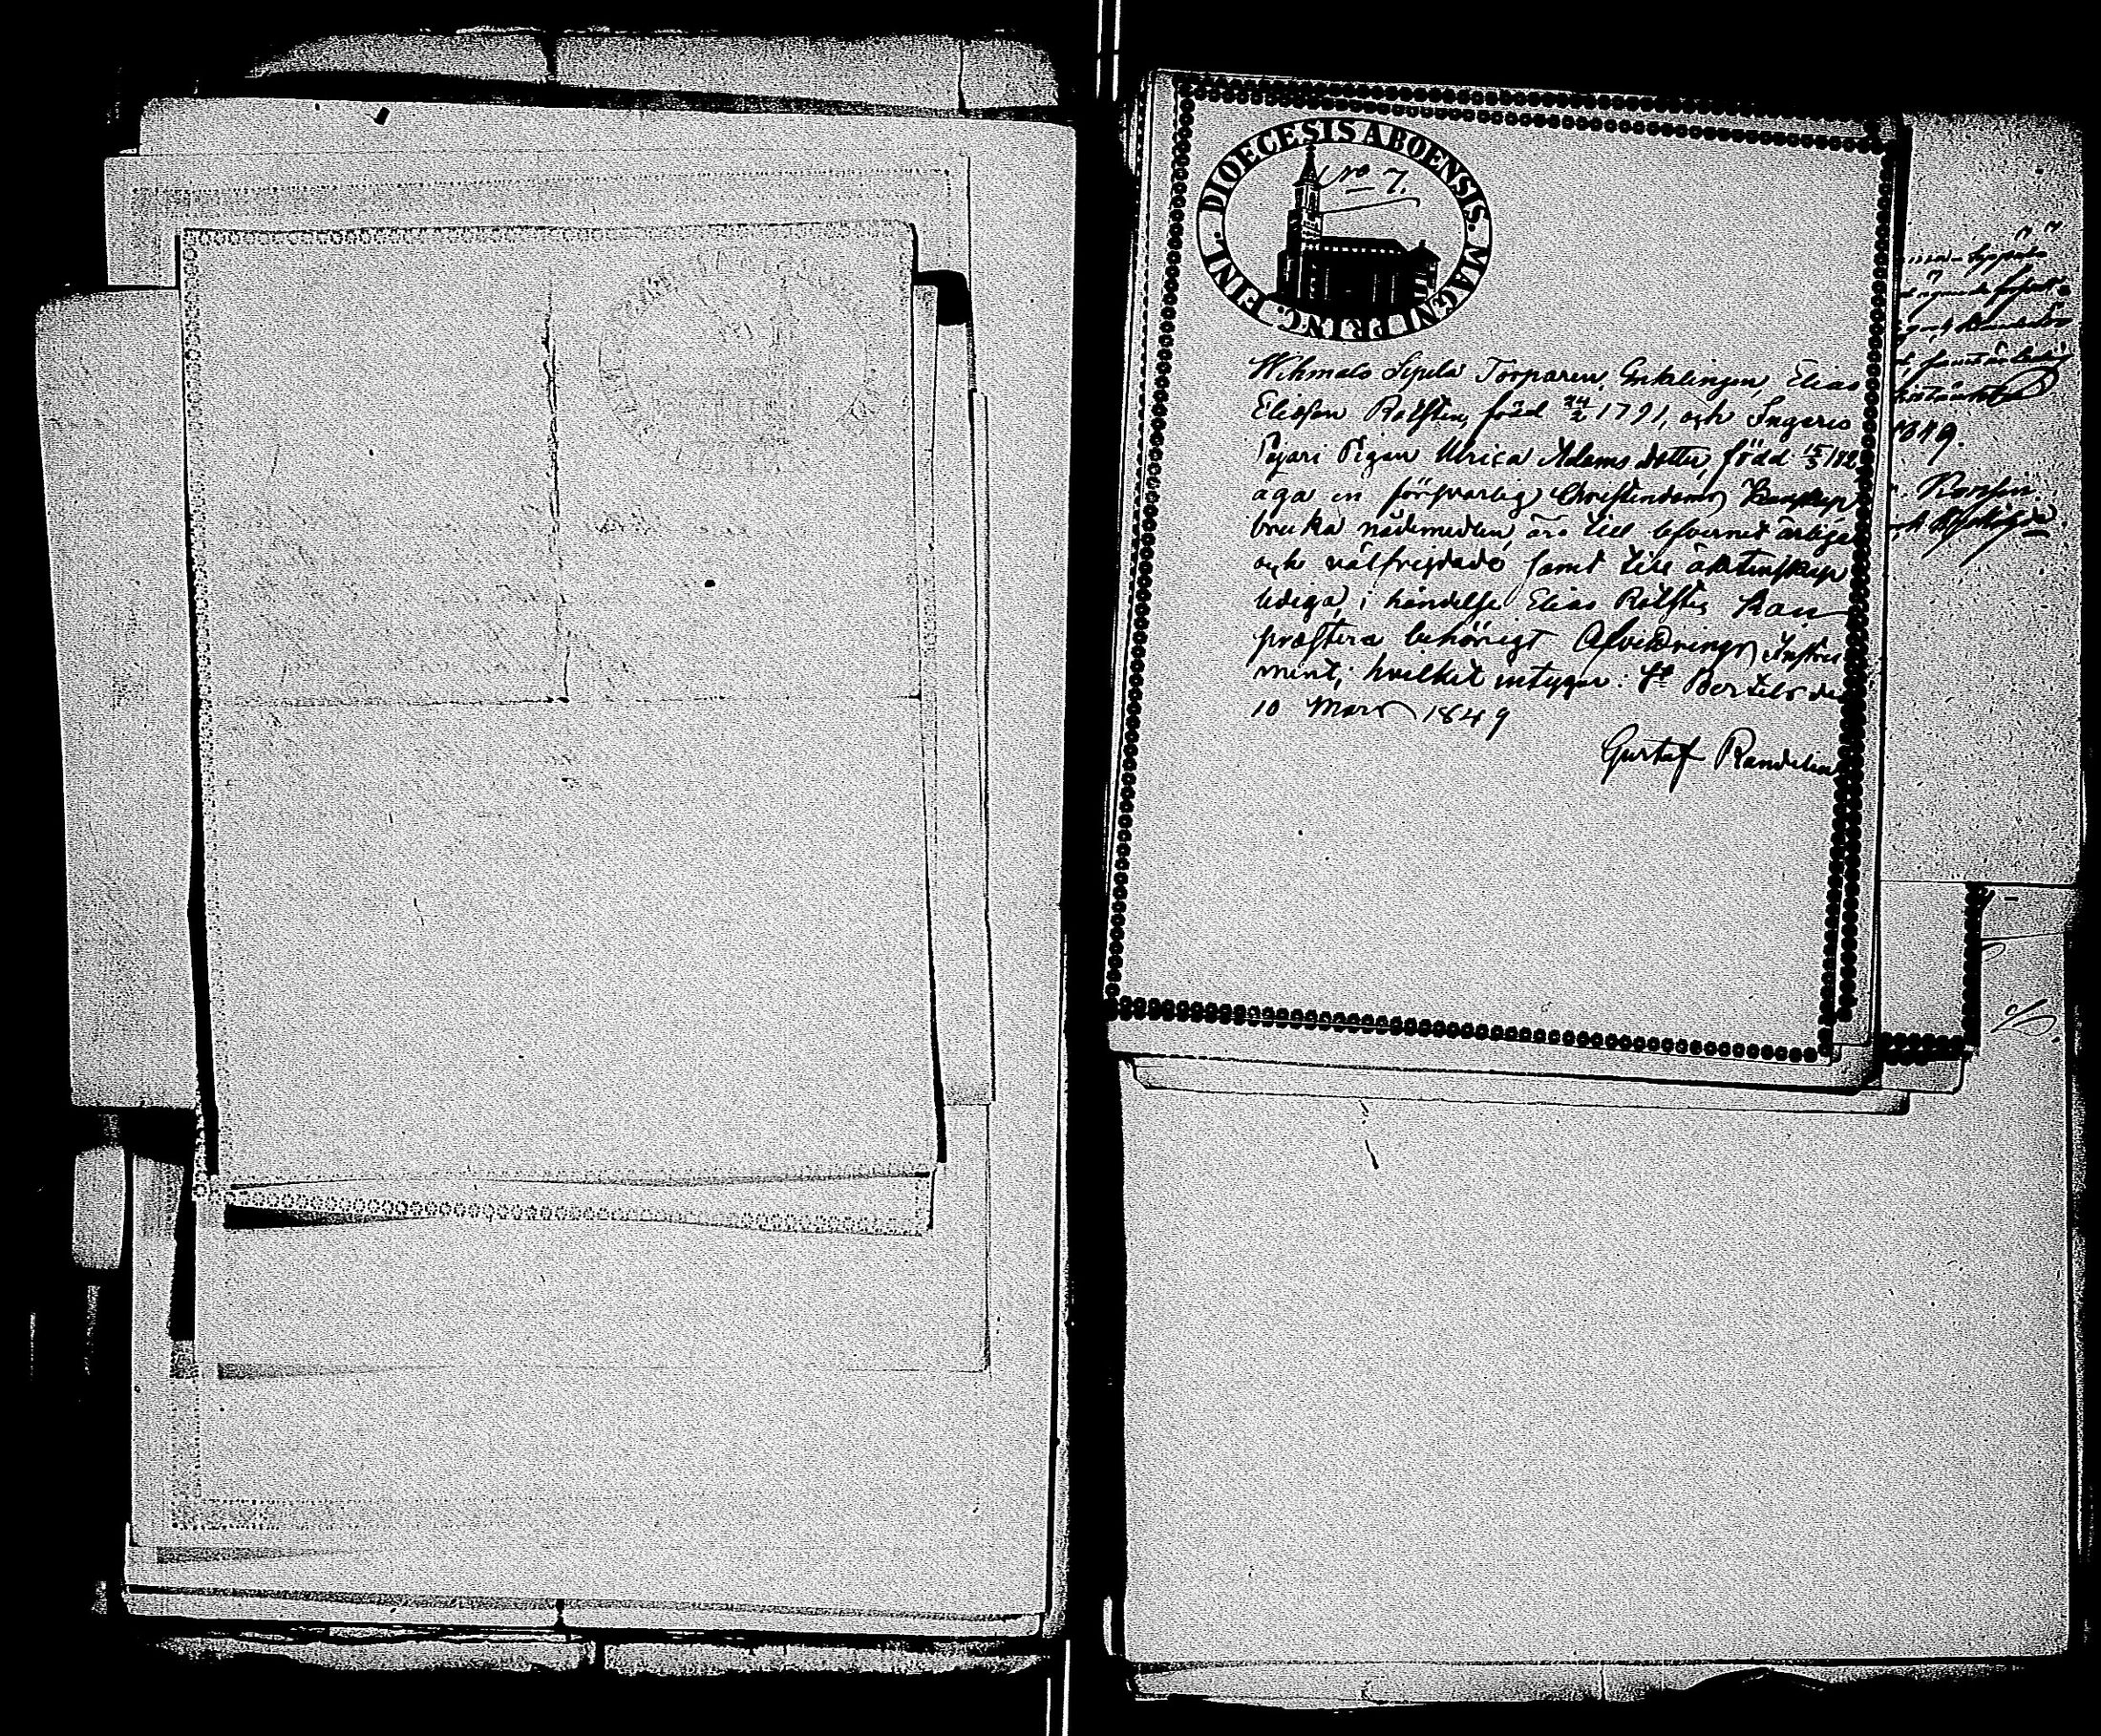 DIOECESIS ABOENSIS. MAGNI PRINC. FINL.
Nro 7.
Wihmalo Sipilä Torparen, Enklingen, Elias
Eliasson Rolfsten, född 24/2 1791, och Ingeris
Pajari Pigan Ulrica Adams dotter, född 15/3 182
äga en försvarlig Christendoms Kunskap
bruka nådemedlen, äro till lefvernet ärliga
och välfrejdade samt till äktenskap
lediga, i händelse Elias Rolfsten kan
præstera behörigt Afvittrings Instru
ment; hvilket intygar: St Bertels den
10 Mars 1849
Gustaf Randelin
1849.